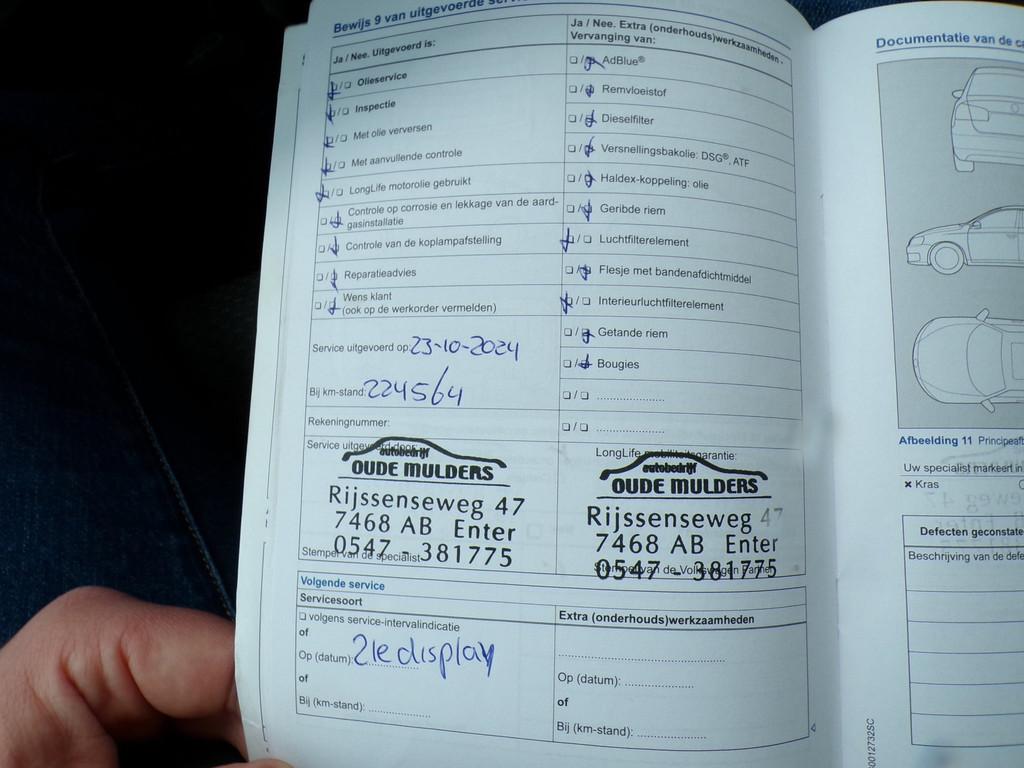 Bewijs 9 van uitgevoerde
Ja / Nee. Uitgevoerd is:
☐/☐ Olieservice
☐/☐ Inspectie
☐/☐ Met olie verversen
☐/☐ Met aanvullende controle
☐/☐ LongLife motorolie gebruikt
☐/☐ Controle op corrosie en lekkage van de aard-
gasinstallatie
☐/☐ Controle van de koplampafstelling
☐/☐ Reparatieadvies
☐/☐ Wens klant
(ook op de werkorder vermelden)
Service uitgevoerd op: 23-10-2024
Bij km-stand: 224564
Rekeningnummer:
Service uitgevoerd door:
autobedrijf
OUDE MULDERS
Rijssenseweg 47
7468 AB Enter
0547 - 381775
Stempel van de specialist
Ja / Nee. Extra (onderhouds)werkzaamheden -
Vervanging van:
☐/☐ AdBlue®
☐/☐ Remvloeistof
☐/☐ Dieselfilter
☐/☐ Versnellingsbakolie: DSG®, ATF
☐/☐ Haldex-koppeling: olie
☐/☐ Geribde riem
☐/☐ Luchtfilterelement
☐/☐ Flesje met bandenafdichtmiddel
☐/☐ Interieurluchtfilterelement
☐/☐ Getande riem
☐/☐ Bougies
☐/☐ ....................
☐/☐ ....................
LongLife mobiliteitsgarantie:
autobedrijf
OUDE MULDERS
Rijssenseweg 47
7468 AB Enter
0547 - 381775
Stempel van de Volkswagen Partner
Volgende service
Servicesoort
☐ volgens service-intervalindicatie
of
Op (datum): Zie display
of
Bij (km-stand): ..................
Extra (onderhouds)werkzaamheden
Op (datum): ....................
of
Bij (km-stand): ....................
Documentatie van de
Afbeelding 11 Principeaf
Uw specialist markeert in
× Kras
Defecten geconstate
Beschrijving van de defe